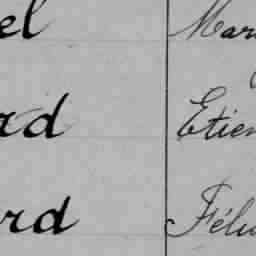 el Mar
rd Etien
rd Féli